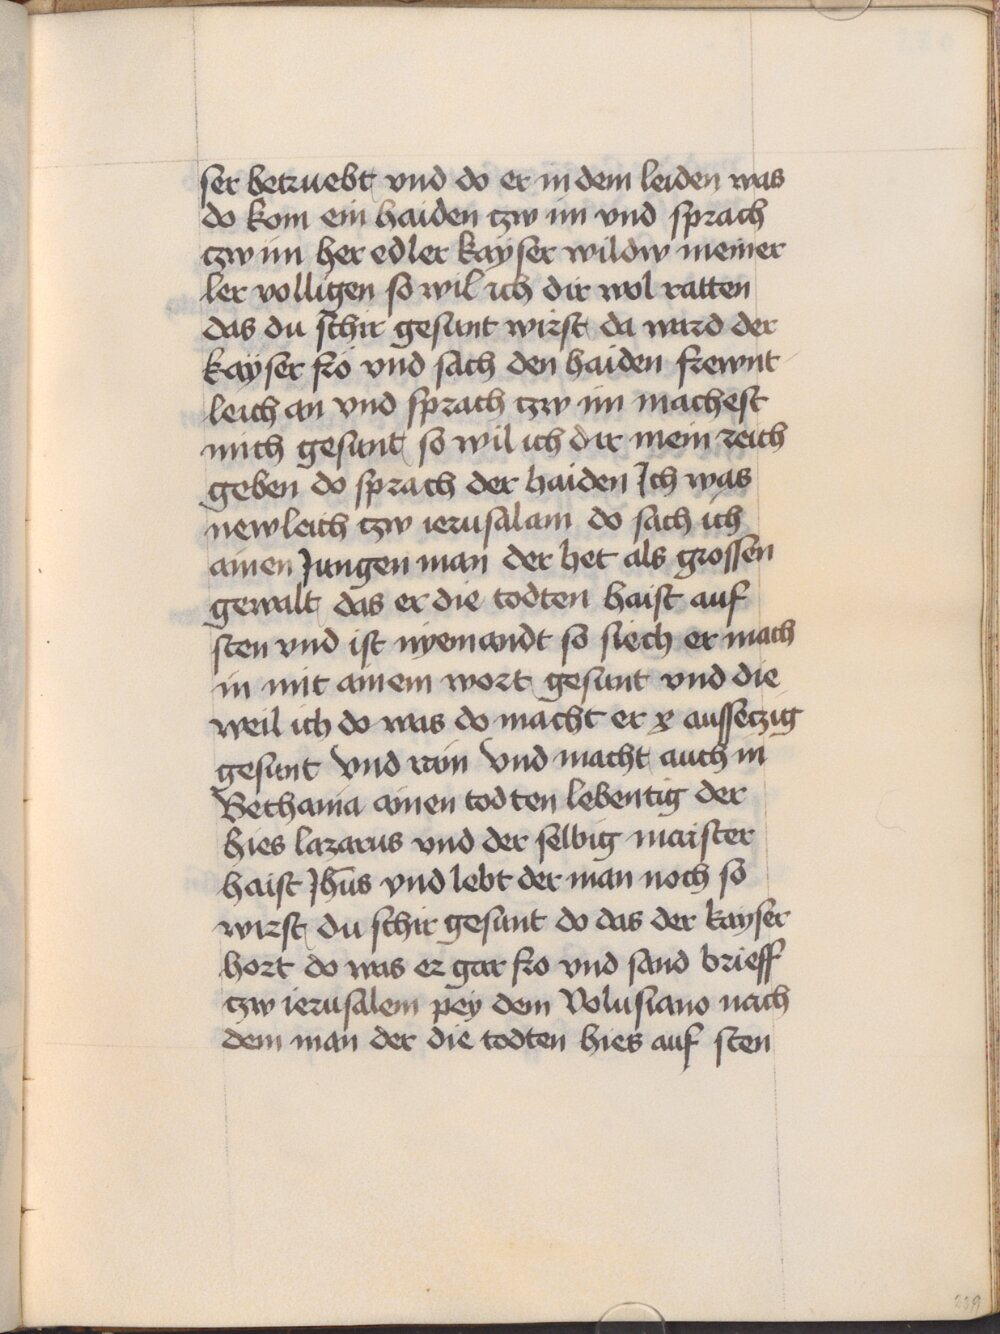 ser betruebt vnd do er in dem leiden was
do kom ein haiden tzw im vnd sprach
tzw im her edler kayser wildw meiner
ler volligen so wil ich dir wol ratten
das du schir gesunt wirst da ward der
kayser fro vnd sach den haiden frewnt
leich an vnd sprach tzw im machest
mich gesunt so wil ich dir mein reich
geben do sprach der haiden Ich was
newleich tzw ierusalam do sach ich
ainen Jungen man der het als grossen
gewalt das er die todten haist auf
sten vnd ist nyemandt so siech er mach
in mit ainem wort gesunt vnd die
weil ich do was do macht er x aussetzig
gesunt vnd rain vnd macht auch in
Bethania ainen todten lebentig der
hies lazarus vnd der selbig maister
haist Jhūs vnd lebt der man noch so
wirst du schir gesunt do das der kayser
hort do was er gar fro vnd sand brieff
tzw ierusalem pey dem Volusiano nach
dem man der die todten hies auf sten
239